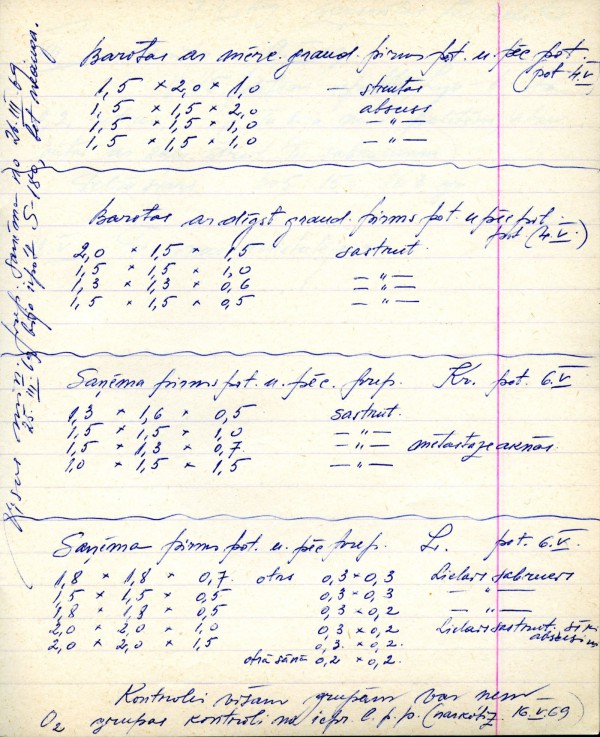 Barotas ar mērc. graud. pirms pot. u. pēc pot.
pot 4.V
1,5 × 2,0 × 1,0 — strutas
1,5 × 1,5 × 2,0 abscess
1,5 × 1,5 × 1,0 — " —
1,5 × 1,5 × 1,0 — " —
Barotas ar dīgst graud. pirms pot. u pēc pot.
pot (4.V.)
2,0 × 1,5 × 1,5 sastrut.
1,5 × 1,5 × 1,0 — " —
1,3 × 1,3 × 0,6 — " —
1,5 × 1,5 × 0,5 — " —
Saņēma pirms pot. u. pēc. prep. Kr. pot. 6.V
1,3 × 1,6 × 0,5 sastrut.
1,5 × 1,5 × 1,0 — " —
1,5 × 1,3 × 0,7. — " — metastaze aknās.
1,0 × 1,5 × 1,5 — " —
Saņēma pirms pot. u. pēc prep. L. pot. 6.V.
1,8 × 1,8 × 0,7. otrs 0,3 × 0,3 Lielais
1,5 × 1,5 × 0,5 0,3 × 0,3 — " —
1,8 × 1,8 × 0,5 0,3 × 0,2 — " —
2,0 × 2,0 × 1,0 0,3 × 0,2 Lielais sastrut. sīki
abscesi
2,0 × 2,0 × 1,5 0,3 × 0,2.
otrā sānā 0,2 × 0,2.
Kontrolei visām grupām var ņemt
O₂ grupas kontroli no l. p. p. 16.V.69
prep. Saņēma no 26.III.69.
25.III.69 S-180, bet